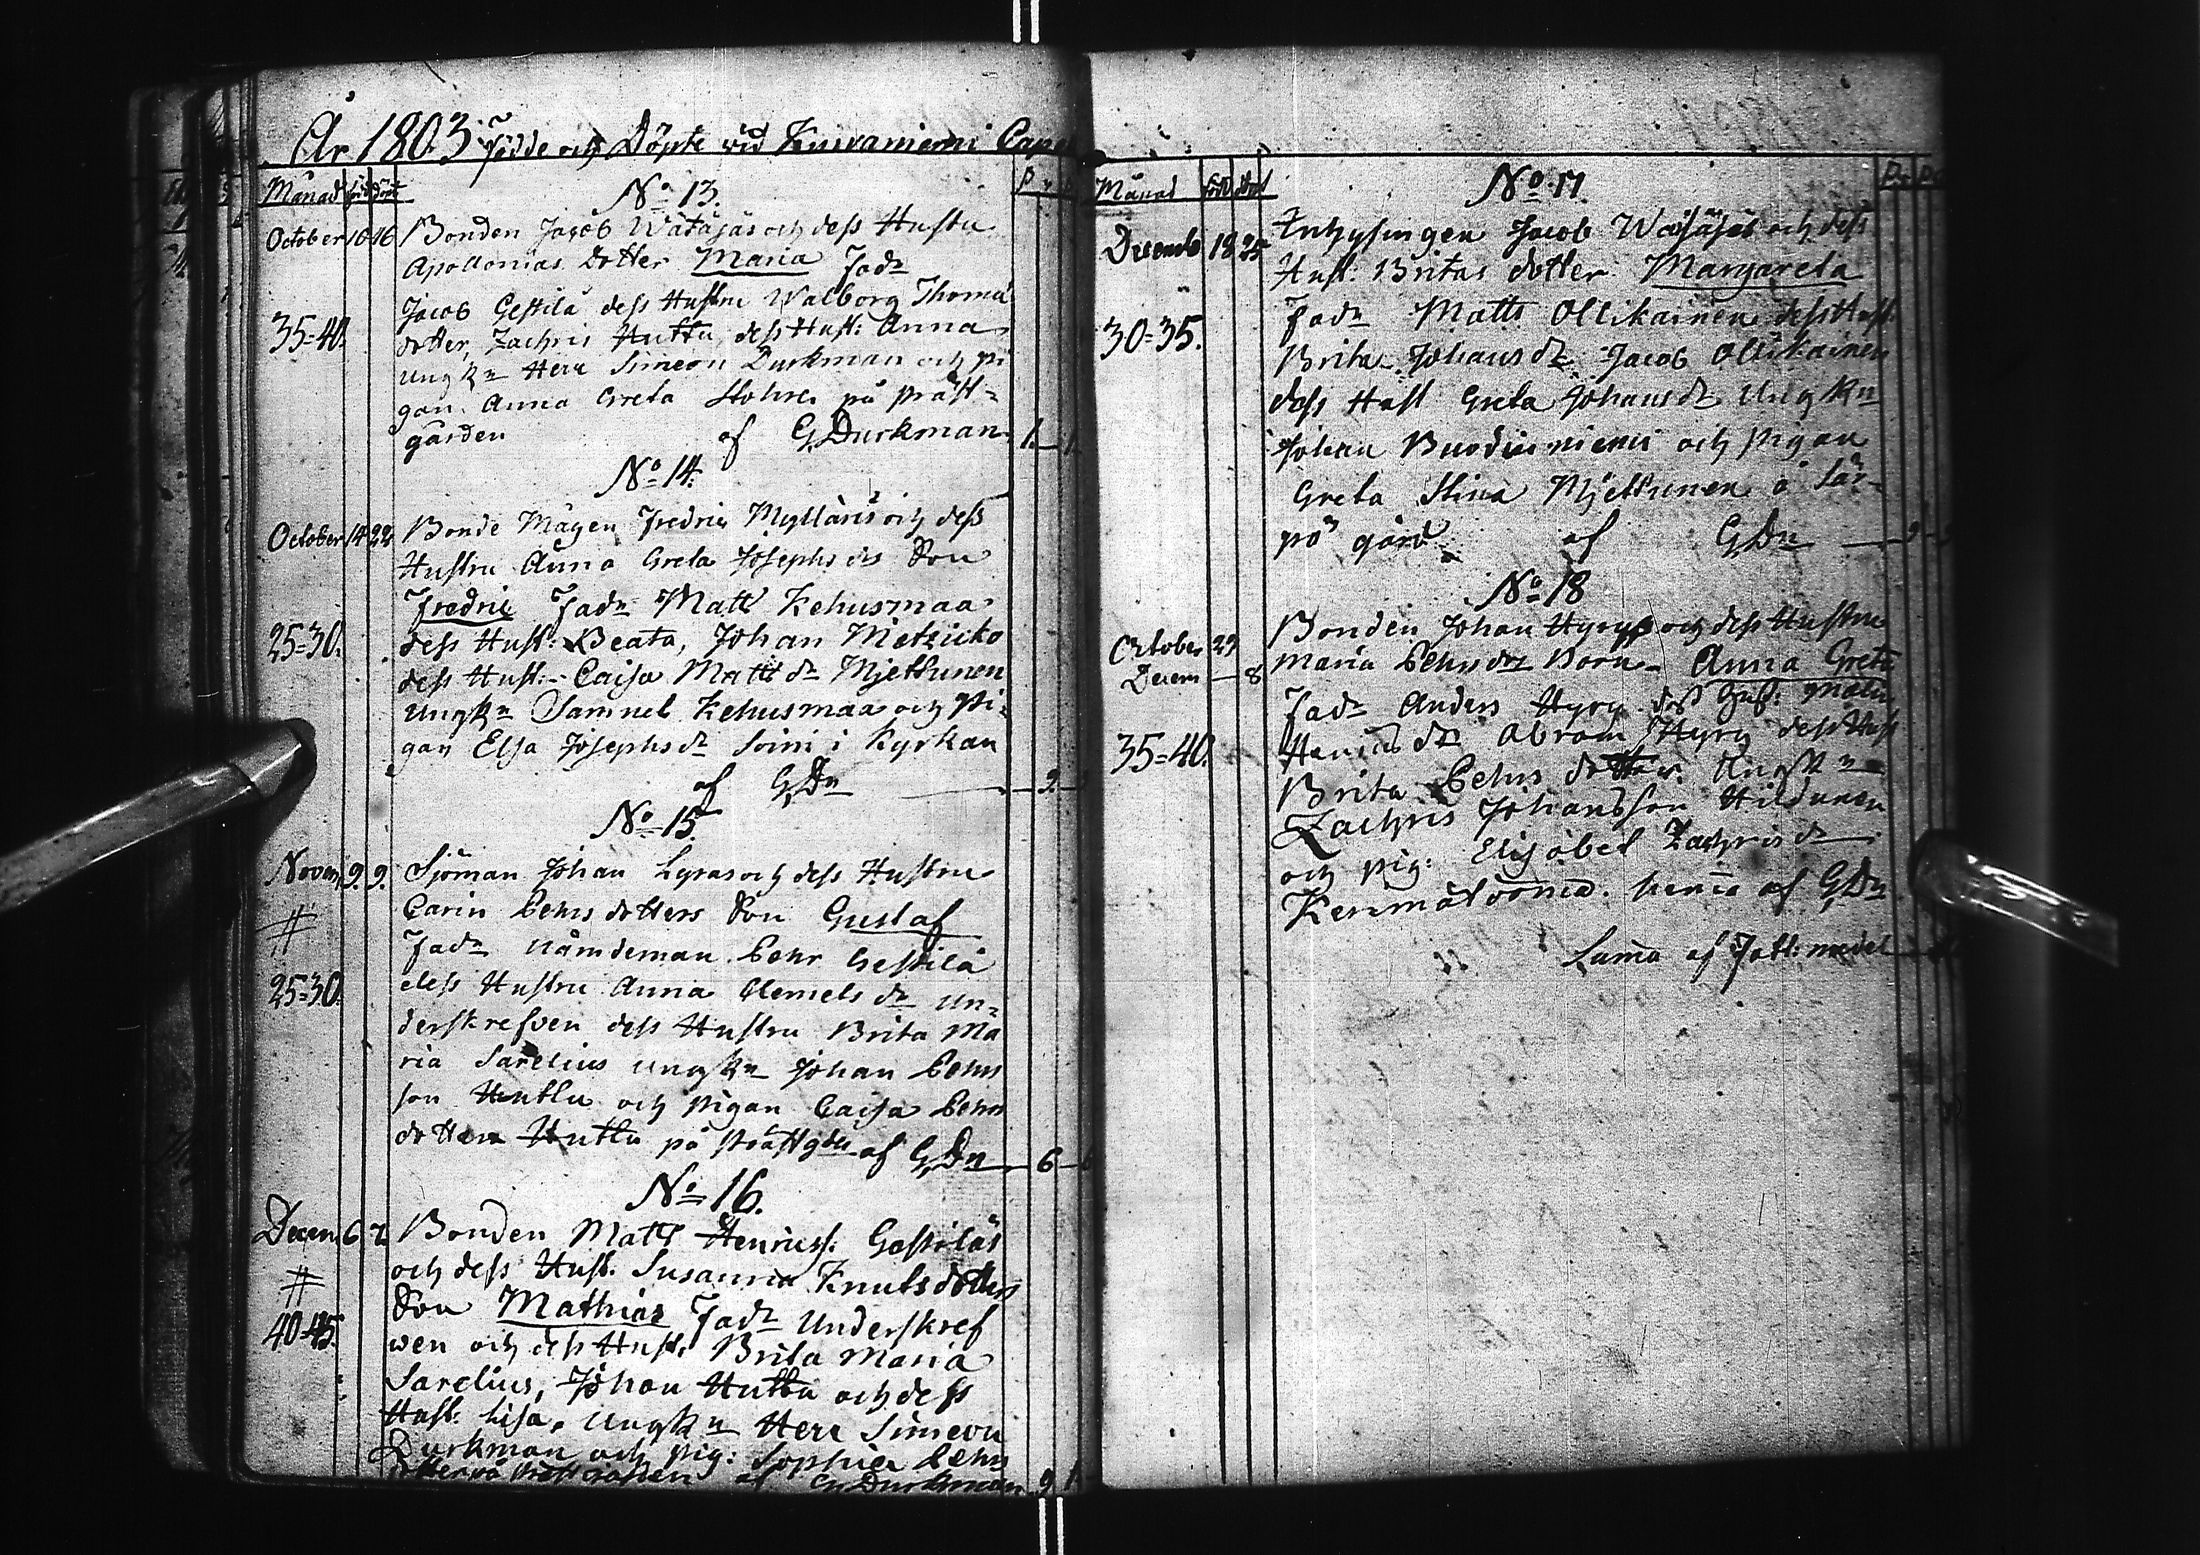 År 1803 Födde och Döpte vid Kuivaniemi Capel
Månad född döpt
No 13.
October 10 16 Bonden Jacob Wätäjäs och dess Hustru
Apollonias dotter Maria Fadr
Jacob Gestilä dess Hustru Walborg Thomæ
35=40. dotter, Zachris Huttu, dess Hust: Anna
ungkn Herr Simeon Durkman och pi
gan Anna Greta Stohre på präst=
gården af G Durkman 1.
No 14.
October 14 22 Bonde Mågen Fredric Mylläris och dess
Hustru Anna Greta Josephs drs Son
Fredric Fadr Matts Kehusmaa
25=30. dess Hust: Beata, Johan
dess Hust: Caisa Matts dr Mjettunen
ungkn Samuel Kehusmaa och Pi=
gan Elsa Josephs dr Soini i Kyrkan
af GDn 9.
No 15.
Novem 9. 9. Sjöman Johan Lyras och dess Hustru
Carin Pehrs dotters Son Gustaf
# Fadr Nämdeman Pehr Gestilä
25=30. dess Hustru Anna Clemets dr un=
derskrefven dess Hustru Brita Ma
ria Sarelius ungkn Johan Pehrs
son Huttu och pigan Caisa Pehrs
dotter Huttu på Prästgdn af GDn 6
No 16.
Decem 6 7 Bonden Matts Henricss: Gestiläs
och dess Hust: Susanna Knutsdotters
# Son Mathias Fadr Underskref
40=45. wen och dess Hust: Brita Maria
Sarelius, Johan Huttu och dess
Hust: Lisa, ungkn Herr Simeon
Durkman och pig: Sophia Pehrs
dotter på Prästgården af G Durkman 9
Månad född döpt
No 17.
Decemb 18 25 Inhysingen Jacob Wätäjäs och dess
Hust: Britas dotter Margareta
Fadr Matts Ollikainen dess Hust:
30=35. Brita Johans dr Jacob Ollikainen
dess Hust Greta Johans dr Ungkn
Johan och Pigan
Greta Stina Mjettunen å Sär=
pä gård af GDn 9
No 18
October 29 Bonden Johan Hyry och dess Hustru
Decem 8 Maria Pehrs drs Barn Anna Greta
Fadr Anders Hyry dess Hust: Malin
35=40. Henrics dr Abram Hyry dess Hust
Brita Pehrs dotter. Ungkn
Zachris Johansson Hildunen
och pig: Elisabet Zachris dr
af GDn